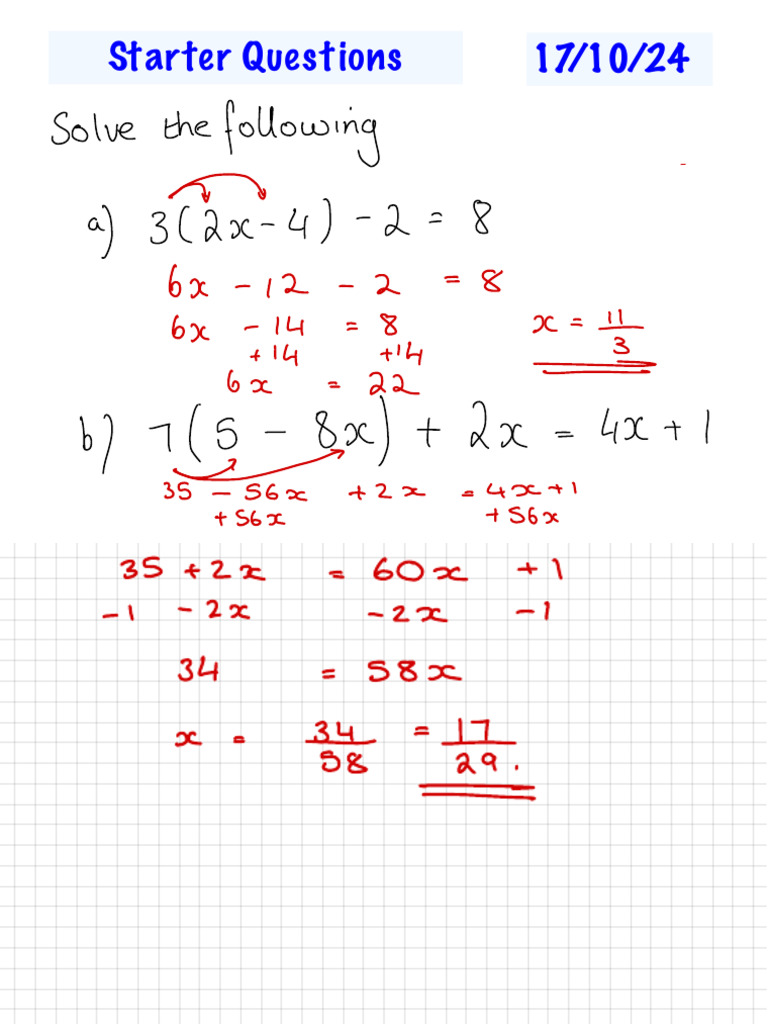 Starter Questions 17/10/24
Solve the following
a) 3(2x-4) - 2 = 8
6x - 12 - 2 = 8
6x - 14 = 8
+14 +14
6x = 22
x = 11/3
b) 7(5 - 8x) + 2x = 4x + 1
35 - 56x + 2x = 4x + 1
+ 56x + 56x
35 + 2x = 60x + 1
-1 - 2x - 2x - 1
34 = 58x
x = 34/58 = 17/29.